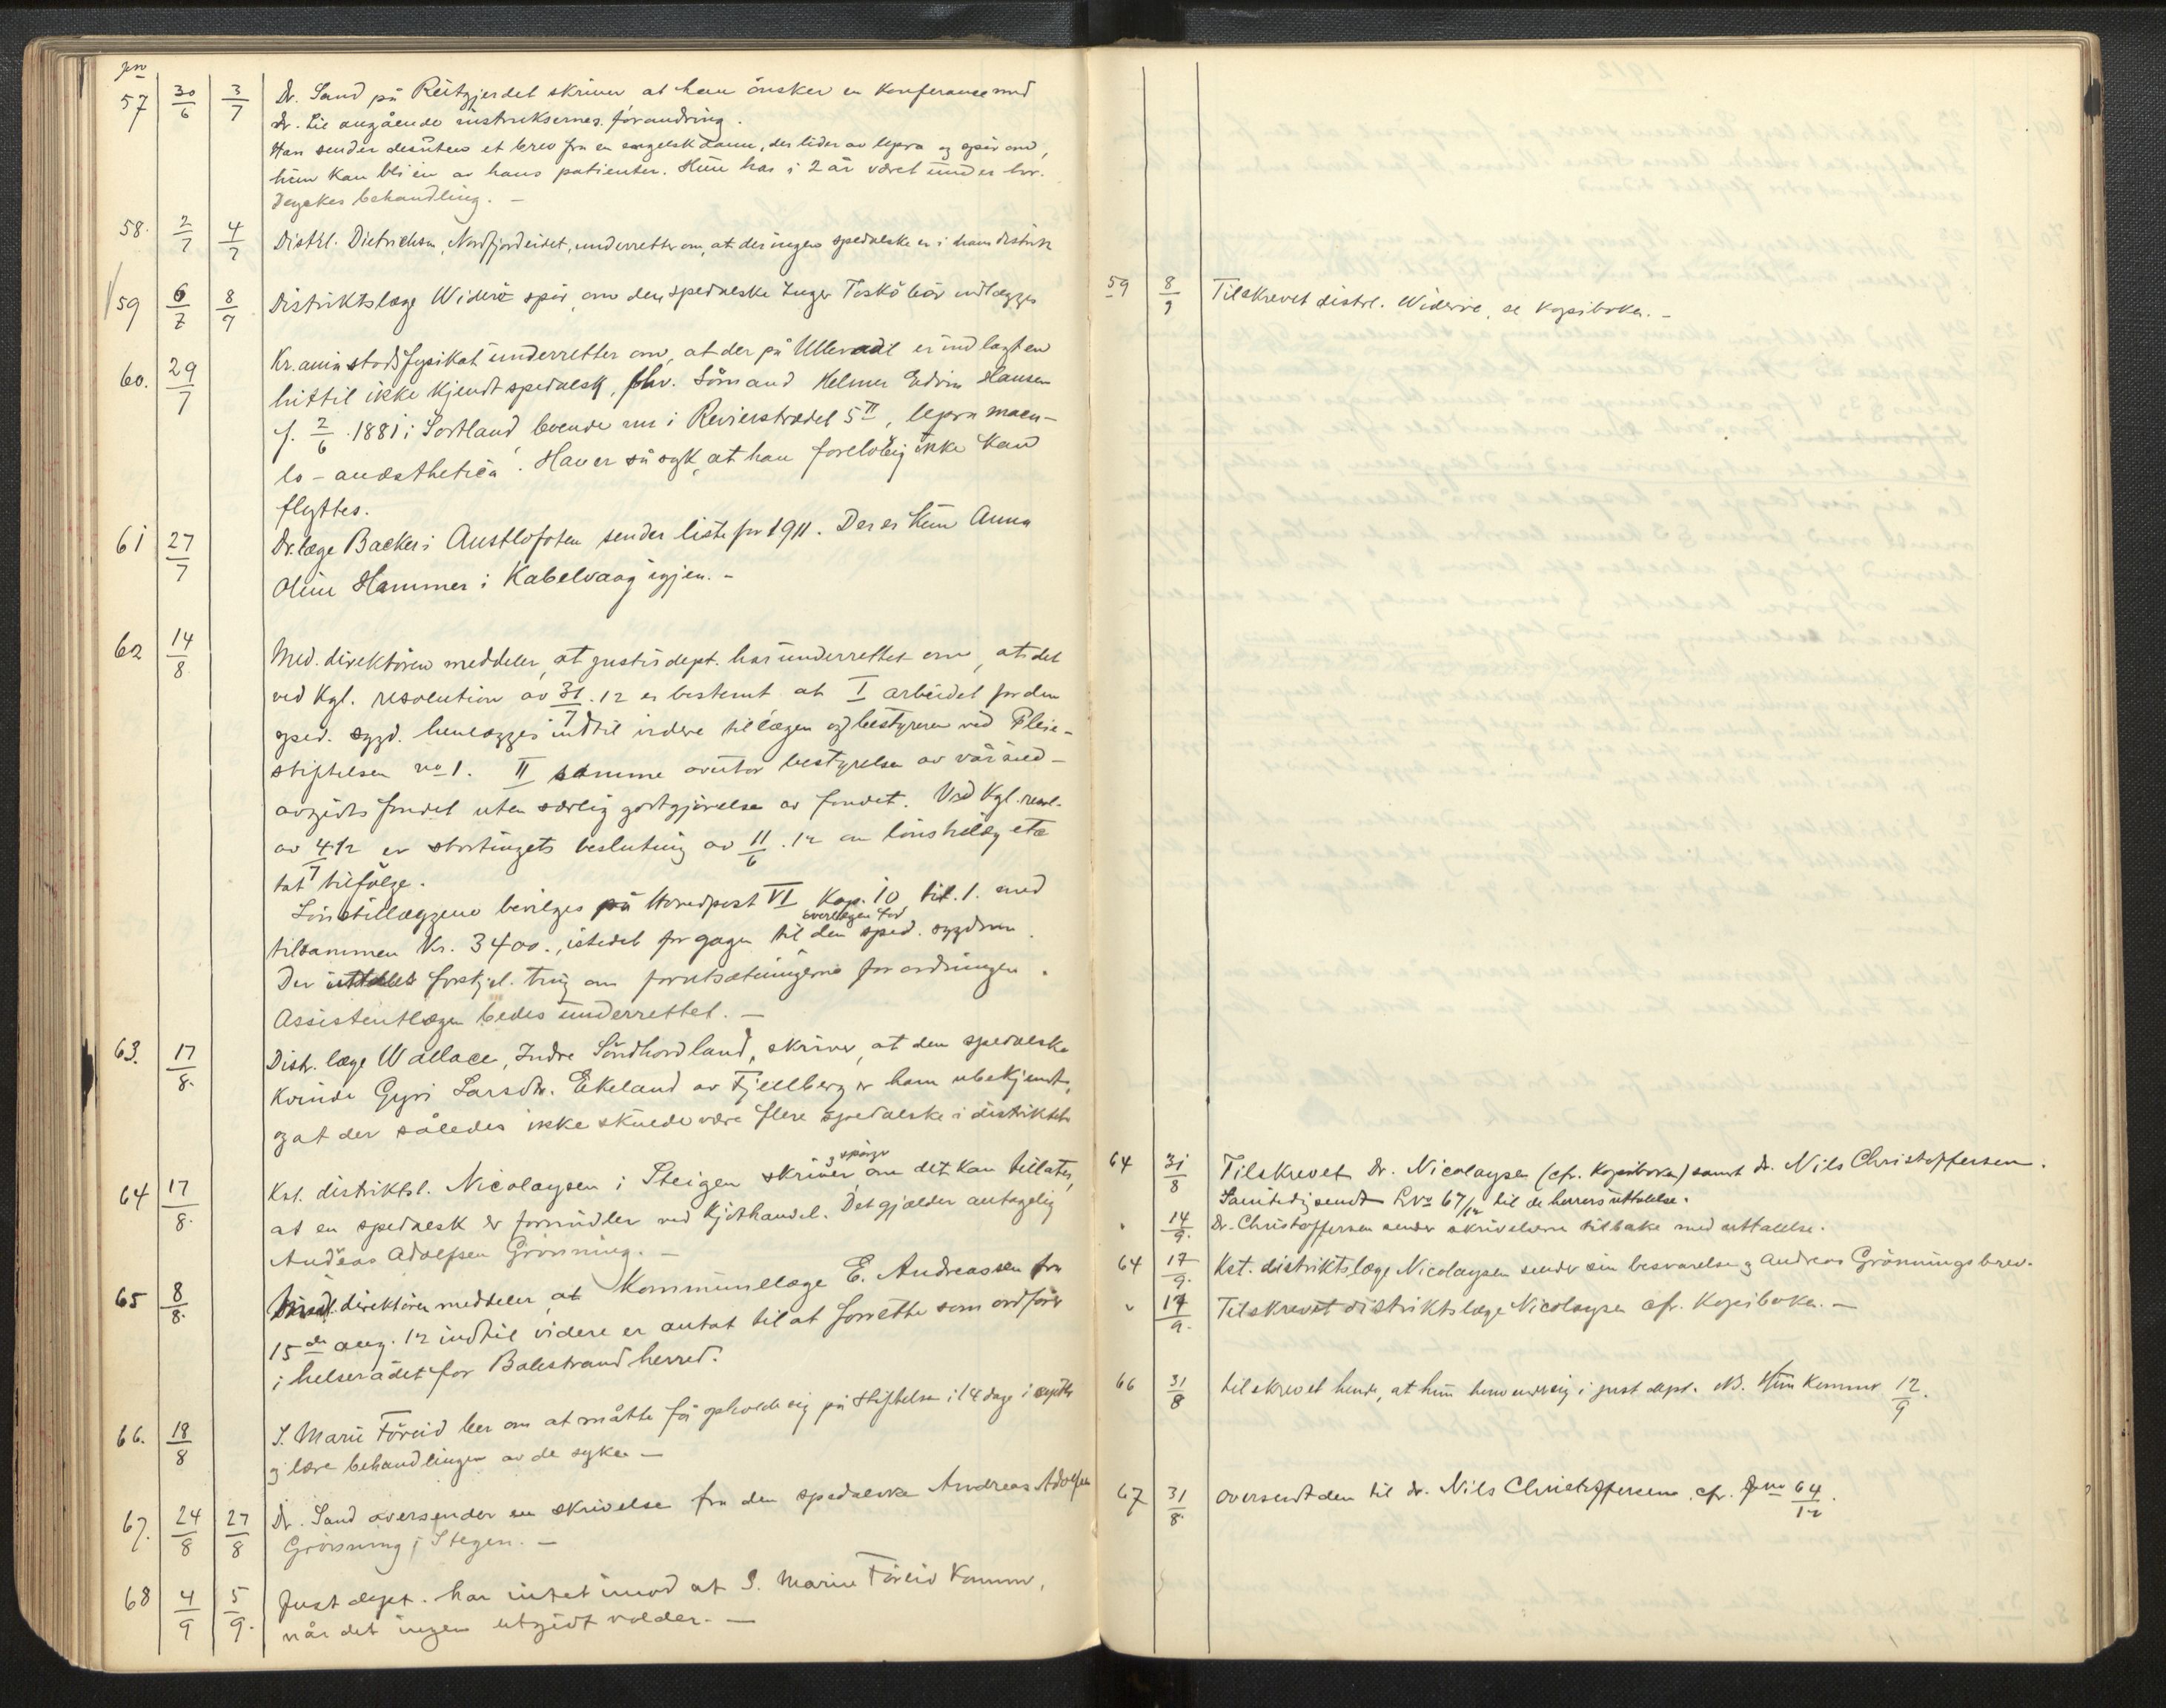 Jno
57 30/6 3/7 Dr. Sand på Reitgjerdet skriver at han ønsker en konferance med
Dr. Lie angående instruksernes forandring.
Han sender desuten et brev fra en engelsk dame, der lider av lepra og spør om,
hun kan bli en av hans patienter. Hun har i 2 år været under hr.
Deyckes behandling. –
58. 2/7 4/7 Distrl. Dietrichson, Nordfjordeidet, underretter om, at der ingen spedalske er i hans distrikt
59 6/7 8/7 Distriktslæge Widerö spör, om den spedalske Inger Toskö bör indlægges
60. 29/7 Kr.ania stadsfysikat underretter om, at der på Ullevaal er indlagt en
hittil ikke kjendt spedalsk, fhv. Sömand Helmer Edvin Hansen
f. 2/6. 1881 i Sortland boende nu i Revierstrædet 5 II, lepra macu-
lo-anæsthetica. Han er så syk, at han foreløbig ikke kan
flyttes.
61 27/7 Dr.læge Backer i Austlofoten sender liste for 1911. Der er kun Anna
Oline Hammer i Kabelvaag igjen. –
62 14/8 Med. direktören meddeler, at justisdept. har underrettet om, at det
ved Kgl. resolution av 31/7.12 er bestemt at I arbeidet for den
sped. sygd. henlægges indtil videre til lægen og bestyreren ved Pleie-
stiftelsen no 1. II samme overtar bestyrelse av
avgifts fondet uten særlig godtgjörelse av fondet. Ved Kgl. resol.
av 4/7 12 er stortingets beslutning av 11/6. 12 om lönstillæg etc
tat tilfölge.
Lönstillæggene bevilges på Hovedpost VI Kap. 10 tit. 1. med
tilsammen Kr. 3400., istedet for gagen til overlægen for den sped. sygdom.
Der forskjel. ting om forutsætningerne for ordningen.
Assistentlægen bedes underrettet. –
63. 17/8. Distr. læge Wallace, Indre Söndhordland, skriver, at den spedalske
kvinde Gyri Larsdtr. Ekeland av Fjellberg er ham ubekjendt,
og at der således ikke skulde være flere spedalske i distriktet
64 17/8. Kst. distriktsl. Nicolaysen i Steigen skriver og spörger om det kan tillates,
at en spedalsk er formidler ved kjöthandel. Det gjælder antagelig
Andreas Adolfsen Grönning. –
65 8/8. Med. direktören meddeler at Kommunelæge E. Andreassen fra
15de aug. 12 indtil videre er antat til at forrette som ordförer
i helserådet for Balestrand herred.
66. 18/8 S. Marie Föreid ber om at måtte få opholde sig på Stiftelsen i 14 dage i septbr
og lære behandlingen av de syke. –
67. 24/8 27/8 Dr. Sand oversender en skrivelse fra den spedalske Andreas Adolfsen
Grönning i Stegen. –
68 4/9 5/9. Just dept. har intet imod at S. Marie Föreid kommer,
når det ingen utgift volder. –
59 8/7 Tilskrevet distrl. Wideröe, se kopiboken. –
64 31/8 Tilskrevet Dr. Nicolaysen (cfr. Kopiboken) samt dr. Nils Christoffersen.
Samtidig sendt Jno 67/12 til de herrers uttalelse.
" 14/9. Dr. Christoffersen sender skrivelserne tilbake med uttalelse.
64 17/9. Kst. distriktslæge Nicolaysen sender sin besvarelse og Andreas Grönnings brev.
" 17/9. Tilskrevet distriktslæge Nicolaysen cfr. Kopiboken. –
66 31/8 tilskrevet hende, at hun henvender sig i just dept. NB. Hun kommer 12/9.
67 31/8. oversendt den til dr. Nils Christoffersen. cfr. Jno 64/12.